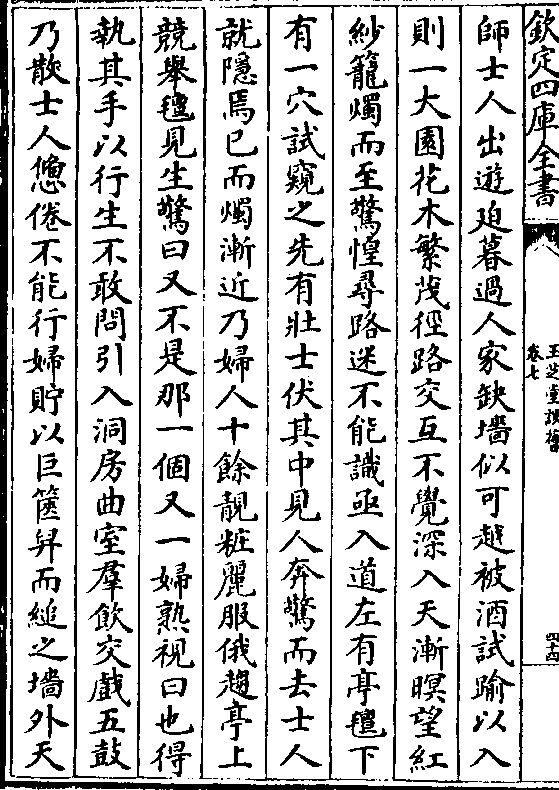 欽定四庫全書
玉芝堂談薈
卷七
四十四
師士人出遊廹暮過人家缺墻似可越被酒試踰以入
則一大園花木繁茂徑路交互不覺深入天漸暝望紅
紗籠燭而至驚惶尋路迷不能識亟入道左有亭氊下
有一穴試窺之先有壯士伏其中見人奔驚而去士人
就隱焉已而燭漸近乃婦人十餘靚粧麗服俄趨亭上
競舉氊見生驚曰又不是那一個又一婦熟視曰也得
執其手以行生不敢問引入洞房曲室羣飲交戲五鼓
乃散士人憊倦不能行婦貯以巨篋舁而縋之墻外天